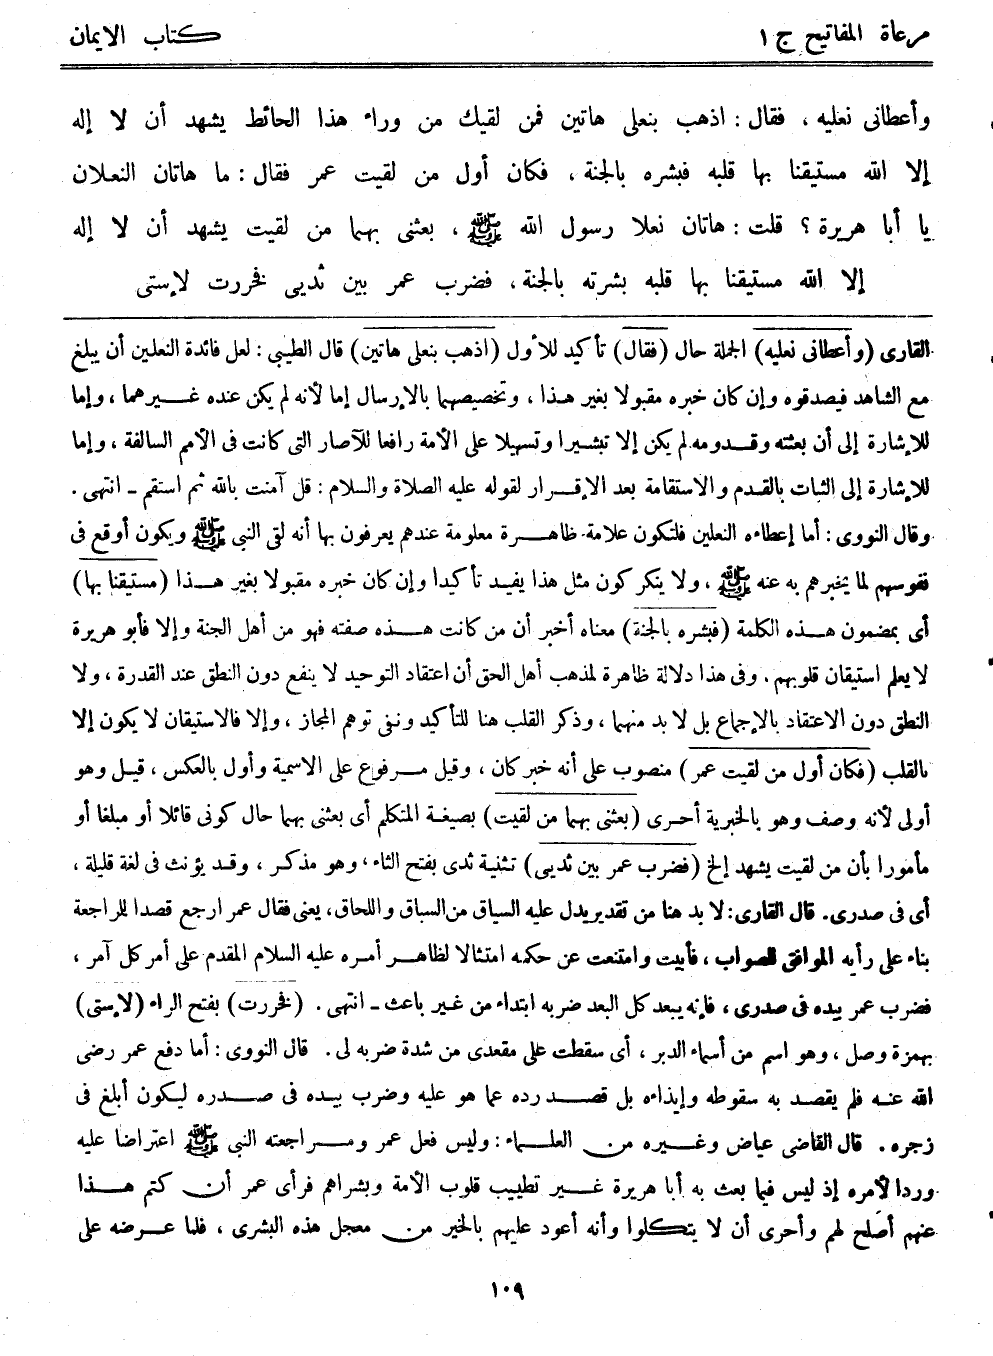 مرعاة المفاتيح ج ١
كتاب الايمان
وأعطانى نعليه ، فقال : اذهب بنعلى هاتين فمن لقيك من وراء هذا الحائط يشهد أن لا إله
إلا الله مستيقنا بها قلبه فبشره بالجنة ، فكان أول من لقيت عمر فقال : ما هاتان النعلان
يا أبا هريرة ؟ قلت : هاتان نعلا رسول الله ﷺ ، بعثنى بهما من لقيت يشهد أن لا إله
إلا الله مستيقنا بها قلبه بشرته بالجنة ، فضرب عمر بين ثديى فخررت لإستى
القارى (وأعطانى نعليه) الجملة حال (فقال) تأكيد للأول (اذهب بنعلى هاتين) قال الطيبى : لعل فائدة النعلين أن يبلغ
مع الشاهد فيصدقوه وإن كان خبره مقبولا بغير هذا ، وتخصيصهما بالإرسال إما لأنه لم يكن عنده غيرهما ، وإما
للإشارة إلى أن بعثته وقدومه لم يكن إلا تبشيرا وتسهيلا على الأمة رافعا للآصار التى كانت فى الأمم السالفة ، وإما
للإشارة إلى الثبات بالقدم والاستقامة بعد الإقرار لقوله عليه الصلاة والسلام : قل آمنت بالله ثم استقم ـ انتهى .
وقال النووى : أما إعطاءه النعلين فلتكون علامة ظاهرة معلومة عندهم يعرفون بها أنه لقى النبى ﷺ ويكون أوقع فى
نفوسهم لما يخبرهم به عنه ﷺ ، ولا ينكر كون مثل هذا يفيد تأكيدا وإن كان خبره مقبولا بغير هذا (مستيقنا بها)
أى بمضمون هذه الكلمة (فبشره بالجنة) معناه أخبر أن من كانت هذه صفته فهو من أهل الجنة وإلا فأبو هريرة
لا يعلم استيقان قلوبهم . وفى هذا دلالة ظاهرة لمذهب أهل الحق أن اعتقاد التوحيد لا ينفع دون النطق عند القدرة ، ولا
النطق دون الاعتقاد بالإجماع بل لا بد منهما ، وذكر القلب هنا للتأكيد ونفى توهم المجاز ، وإلا فالاستيقان لا يكون إلا
بالقلب (فكان أول من لقيت عمر) منصوب على أنه خبر كان ، وقيل مرفوع على الاسمية وأول بالعكس ، قيل وهو
أولى لأنه وصف وهو بالخبرية أحرى (بعثنى بهما من لقيت) بصيغة المتكلم أى بعثنى بهما حال كونى قائلا أو مبلغا أو
مأمورا بأن من لقيت يشهد إلخ (فضرب عمر بين ثديى) تثنية ثدى بفتح الثاء ، وهو مذكر ، وقد يؤنث فى لغة قليلة ،
أى فى صدرى. قال القارى : لا بد هنا من تقدير يدل عليه السياق من السباق واللحاق، يعنى فقال عمر ارجع قصدا للراجعة
بناء على رأيه الموافق للصواب ، فأبيت وامتنعت عن حكمه امتثالا لظاهر أمره عليه السلام المقدم على أمر كل آمر ،
فضرب عمر بيده فى صدرى ، فإنه يبعد كل البعد ضربه ابتداء من غير باعث ـ انتهى . (فخررت) بفتح الراء (لإستى)
بهمزة وصل ، وهو اسم من أسماء الدبر ، أى سقطت على مقعدى من شدة ضربه لى . قال النووى : أما دفع عمر رضى
الله عنه فلم يقصد به سقوطه وإيذاءه بل قصد رده عما هو عليه وضرب بيده فى صدره ليكون أبلغ فى
زجره . قال القاضى عياض وغيره من العلماء : وليس فعل عمر ومراجعته النبى ﷺ اعتراضا عليه
وردا لأمره إذ ليس فيما بعث به أبا هريرة غير تطييب قلوب الأمة وبشراهم فرأى عمر أن كتم هذا
عنهم أصلح لهم وأحرى أن لا يتكلوا وأنه أعود عليهم بالخير من معجل هذه البشرى ، فلما عرضه على
١٠٩